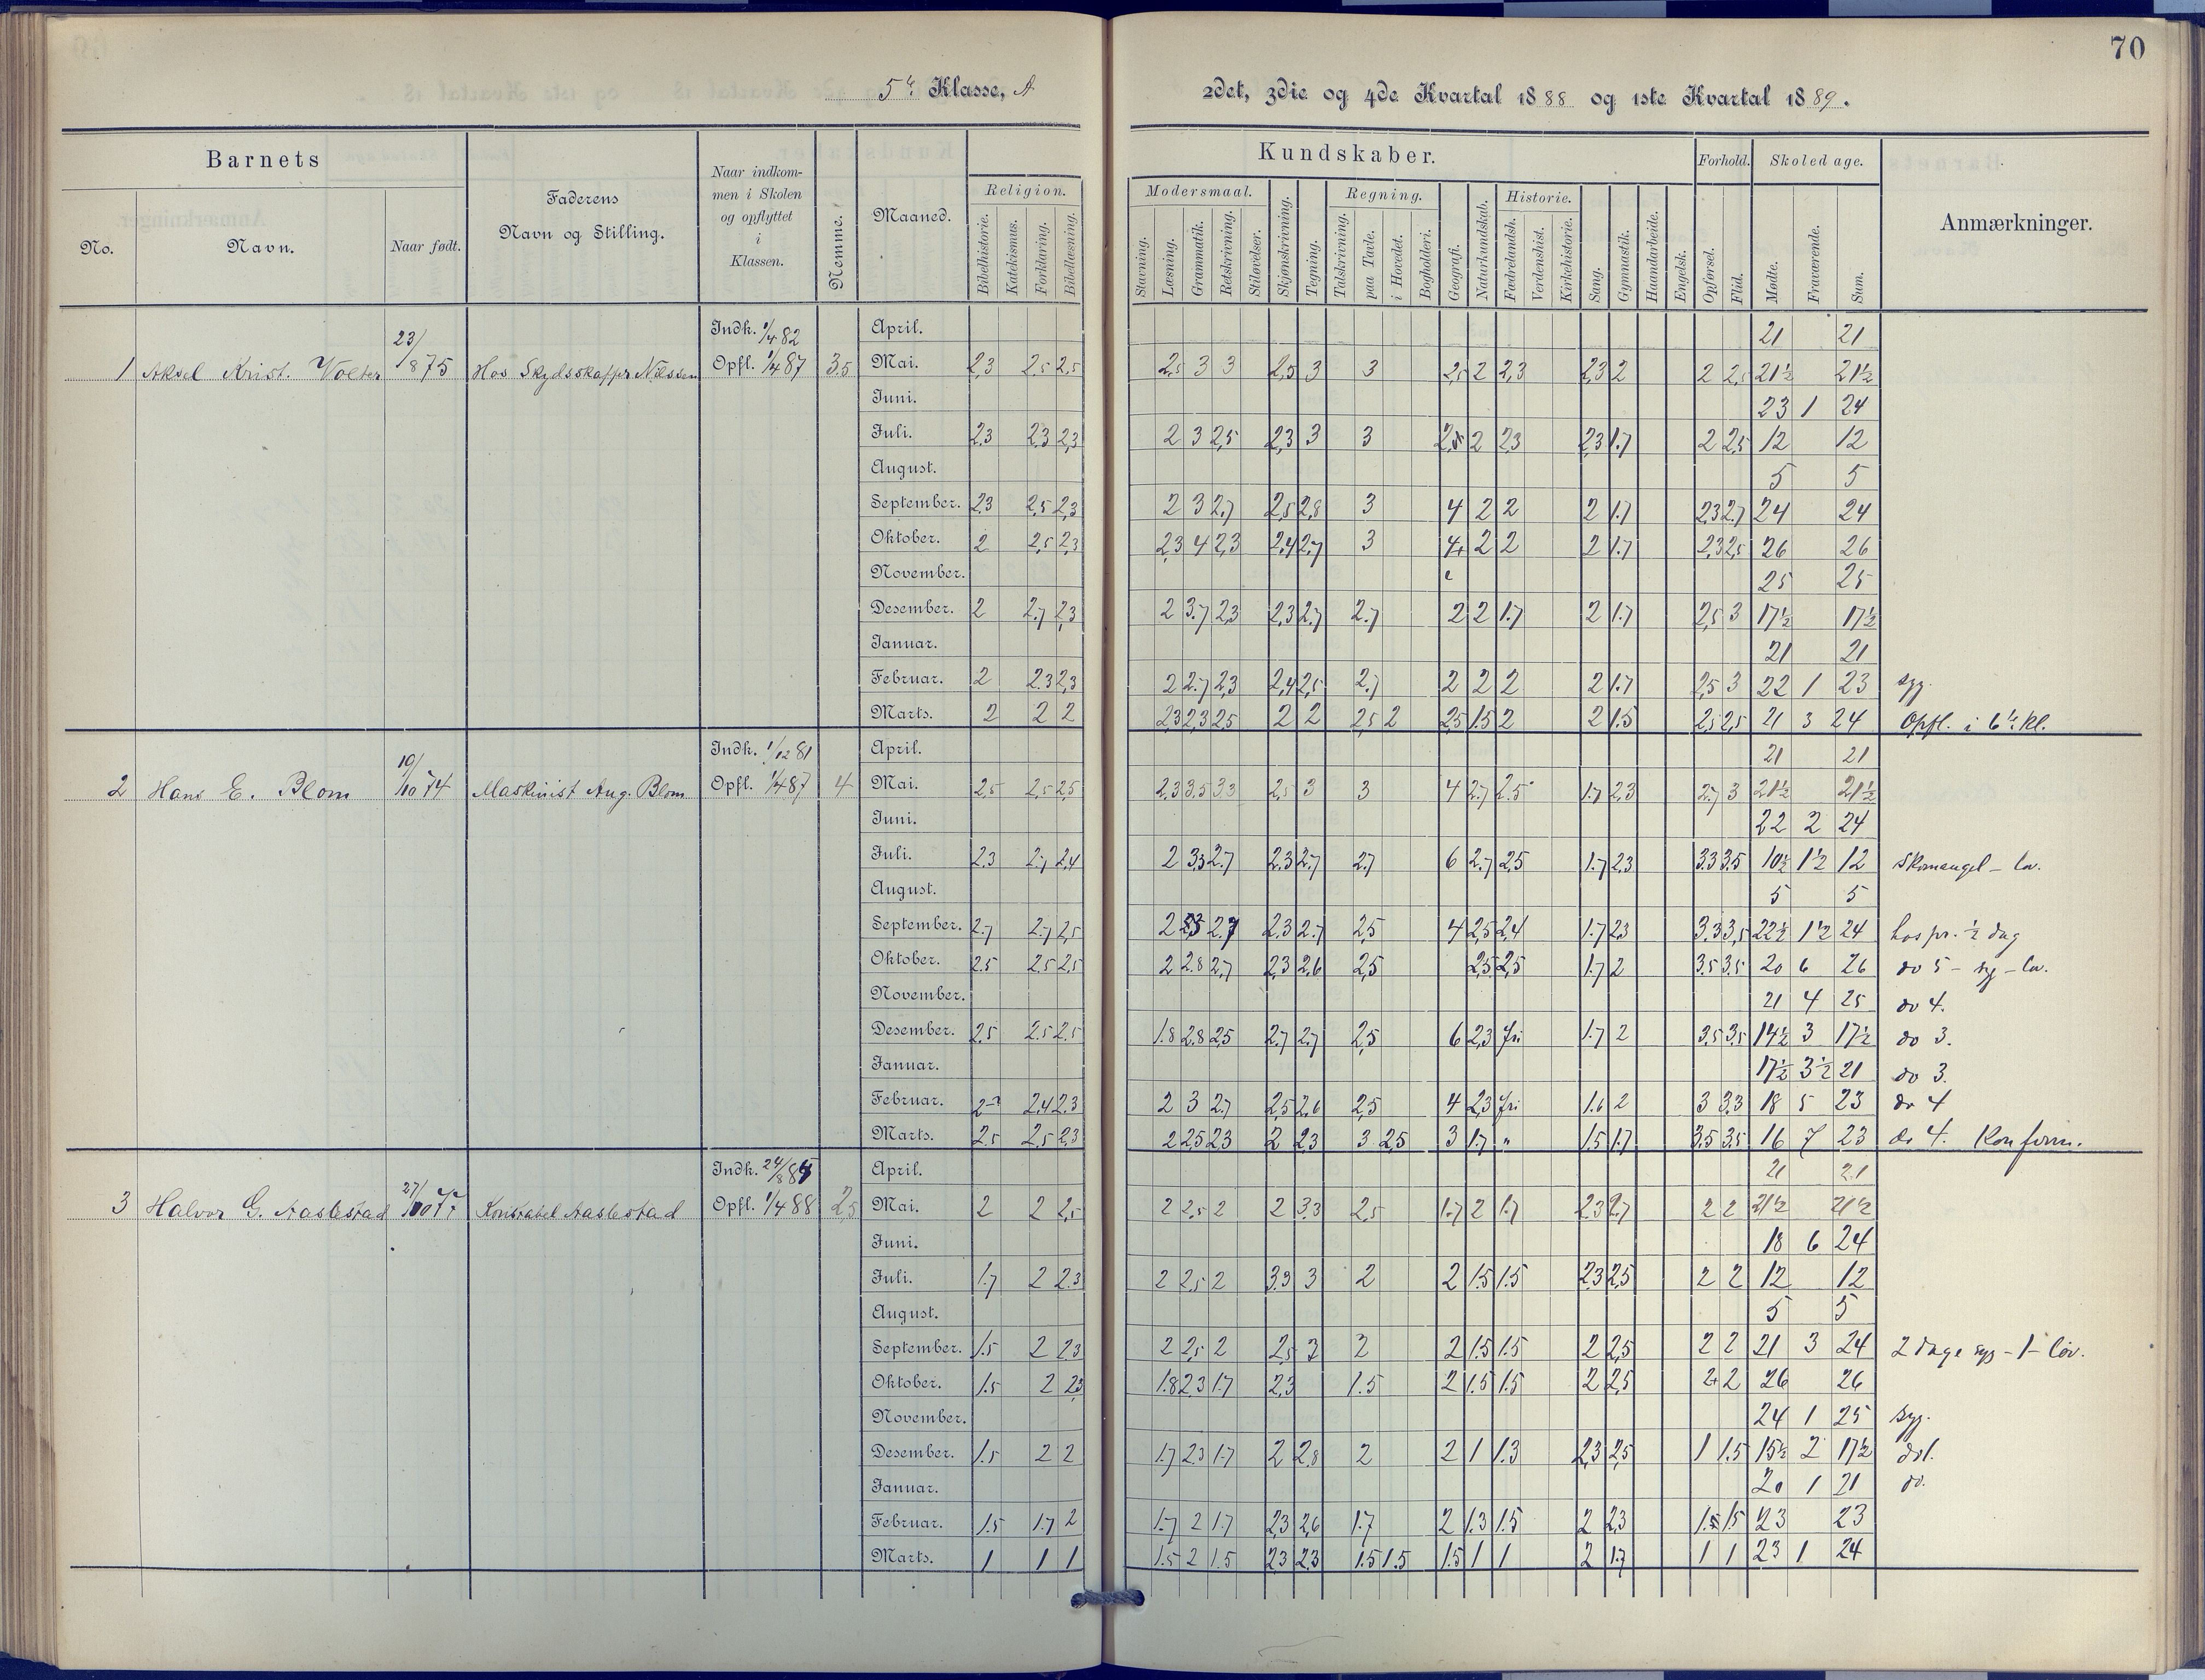 70
5te Klasse, A
2det, 3die og 4de Kvartal 1888 og 1ste Kvartal 1889.
Barnets
No. Navn. Naar født.
Faderens Navn og Stilling.
Naar indkommen i Skolen og opflyttet i Klassen.
Nemme.
Maaned.
Religion.
Bibelhistorie. Katekismus. Forklaring. Bibellæsning.
Kundskaber.
Modersmaal.
Stavning. Læsning. Grammatik. Retskrivning. Stiløvelser.
Skjønskrivning. Tegning.
Regning.
Talskrivning. paa Tavle. i Hovedet. Bogholderi.
Geografi. Naturkundskab.
Historie.
Fædrelandsh. Verdenshist. Kirkehistorie.
Sang. Gymnastik. Haandarbeide. Engelsk.
Forhold.
Opførsel. Flid.
Skoledage.
Mødte. Fraværende. Sum.
Anmærkninger.
1 Aksel Krist. 23/8 75 Hos Skydsskaffer Nilssen Indk. 1/4 82 Opfl. 1/4 87 3,5
April. 21 21
Mai. 2,3 2,5 2,5 2,5 3 3 2,5 3 3 2,5 2 2,3 2,3 2 2 2,5 21½ 21½
Juni. 23 1 24
Juli. 2,3 2,3 2,3 2 3 2,5 2,3 3 3 2,5 2 2,3 2,3 1.7 2 2,5 12 12
August. 5 5
September. 2,3 2,5 2,3 2 3 2,7 2,5 2,8 3 4 2 2 2 1.7 2,3 2,7 24 24
Oktober. 2 2,5 2,3 2,3 4 2,3 2,4 2,7 3 4 2 2 2 1.7 2,3 2,5 26 26
November. 25 25
Desember. 2 2.7 2,3 2 3.7 2,3 2,3 2.7 2.7 2 2 1.7 2 1.7 2,5 3 17½ 17½
Januar. 21 21
Februar. 2 2.3 2,3 2 2.7 2,3 2,4 2,5 2.7 2 2 2 2 1.7 2,5 3 22 1 23 syg.
Marts. 2 2 2 2,3 2,3 2,5 2 2 2,5 2 2,5 1.5 2 2 1.5 2,5 2,5 21 3 24 Opfl. i 6te Kl.
2 Hans E. Blom 19/10 74 Maskinist Aug. Blom Indk. 1/12 81 Opfl. 1/4 87 4
April. 21 21
Mai. 2,5 2,5 2,5 2,3 3.5 3.3 2,5 3 3 4 2.7 2.5 1.7 2,3 2.7 3 21½ 21½
Juni. 22 2 24
Juli. 2.3 2.7 2.4 2 3.3 2.7 2.3 2.7 2.7 6 2.7 2.5 1.7 2.3 3.3 3.5 10½ 1½ 12 Skomangel - lov.
August. 5 5
September. 2.7 2.7 2,5 2 2.7 2.3 2.7 2,5 4 2,5 2,4 1.7 2,3 3.3 3,5 22½ 1½ 24 hos pr. ½ dag
Oktober. 2.5 2.5 2,5 2 2.8 2,7 2,3 2.6 2,5 2,5 2,5 1.7 2 3.5 3.5 20 6 26 do 5 - syg - lov.
November. 21 4 25 do 4.
Desember. 2.5 2.5 2.5 1.8 2.8 2,5 2.7 2.7 2,5 6 2,3 fri 1.7 2 3.5 3.5 14½ 3 17½ do 3.
Januar. 17½ 3½ 21 do 3.
Februar. 2,4 2.3 2 3 2.7 2,5 2.6 2,5 4 2,3 fri 1.6 2 3 3.3 18 5 23 do 4
Marts. 2.5 2,5 2.3 2 2.5 2.3 2 2.3 3 2.5 3 1.7 " 1.5 1.7 3.5 3.5 16 7 23 do 4. Konfirm.
3 Halvor G. Aaslestad 27/10 Konstabel Aaslestad Indk. 24/8 Opfl. 1/4 88 2,5
April. 21 21
Mai. 2 2 2,5 2 2,5 2 2 3.3 2,5 1.7 2 1.7 2.3 2.7 2 2 21½ 21½
Juni. 18 6 24
Juli. 1.7 2 2.3 2 2,5 2 3.3 3 2 2 1.5 1.5 2.3 2,5 2 2 12 12
August. 5 5
September. 1.5 2 2.3 2 2,5 2 2,5 3 2 2 1.5 1.5 2 2,5 2 2 21 3 24 2 dage syg - 1 - lov.
Oktober. 1.5 2 2,3 1.8 2.3 1.7 2.3 1.5 2 1.5 1.5 2 2,5 2 2 26 26
November. 24 1 25 syg.
Desember. 1.5 2 2 1.7 2.3 1.7 2 2,8 2 2 1 1.3 2,3 2,5 1 1.5 15½ 2 17½
Januar. 20 1 21 do.
Februar. 1.5 1.7 2 1.7 2 1.7 2,3 2,6 1.7 2 1.3 1.5 2 2,3 1.5 1.5 23 23
Marts. 1 1 1 1.5 2 1.5 2,3 2.3 1.5 1.5 1.5 1 1 2 1.7 1 1 23 1 24